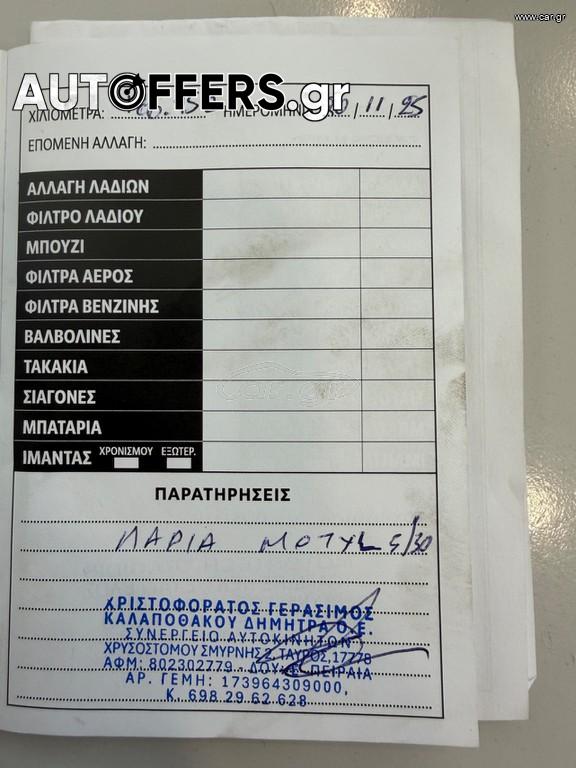 www.car.gr
AUTOFFERS.gr
ΧΙΛΙΟΜΕΤΡΑ: ΗΜΕΡΟΜΗΝΙΑ /11/25
ΕΠΟΜΕΝΗ ΑΛΛΑΓΗ:
ΑΛΛΑΓΗ ΛΑΔΙΩΝ
ΦΙΛΤΡΟ ΛΑΔΙΟΥ
ΜΠΟΥΖΙ
ΦΙΛΤΡΑ ΑΕΡΟΣ
ΦΙΛΤΡΑ ΒΕΝΖΙΝΗΣ
ΒΑΛΒΟΛΙΝΕΣ
ΤΑΚΑΚΙΑ
ΣΙΑΓΟΝΕΣ
ΜΠΑΤΑΡΙΑ
ΙΜΑΝΤΑΣ ΧΡΟΝΙΣΜΟΥ ΕΞΩΤΕΡ.
ΠΑΡΑΤΗΡΗΣΕΙΣ
ΛΑΔΙΑ MOTYL 5/30
ΧΡΙΣΤΟΦΟΡΑΤΟΣ ΓΕΡΑΣΙΜΟΣ
ΚΑΛΑΠΟΘΑΚΟΥ ΔΗΜΗΤΡΑ Ο.Ε.
ΣΥΝΕΡΓΕΙΟ ΑΥΤΟΚΙΝΗΤΩΝ
ΧΡΥΣΟΣΤΟΜΟΥ ΣΜΥΡΝΗΣ 2, ΤΑΥΡΟΣ, 17778
ΑΦΜ: 802302779 - ΔΟΥ: ΠΕΙΡΑΙΑ
ΑΡ. ΓΕΜΗ: 173964309000,
Κ. 698 29 62 628